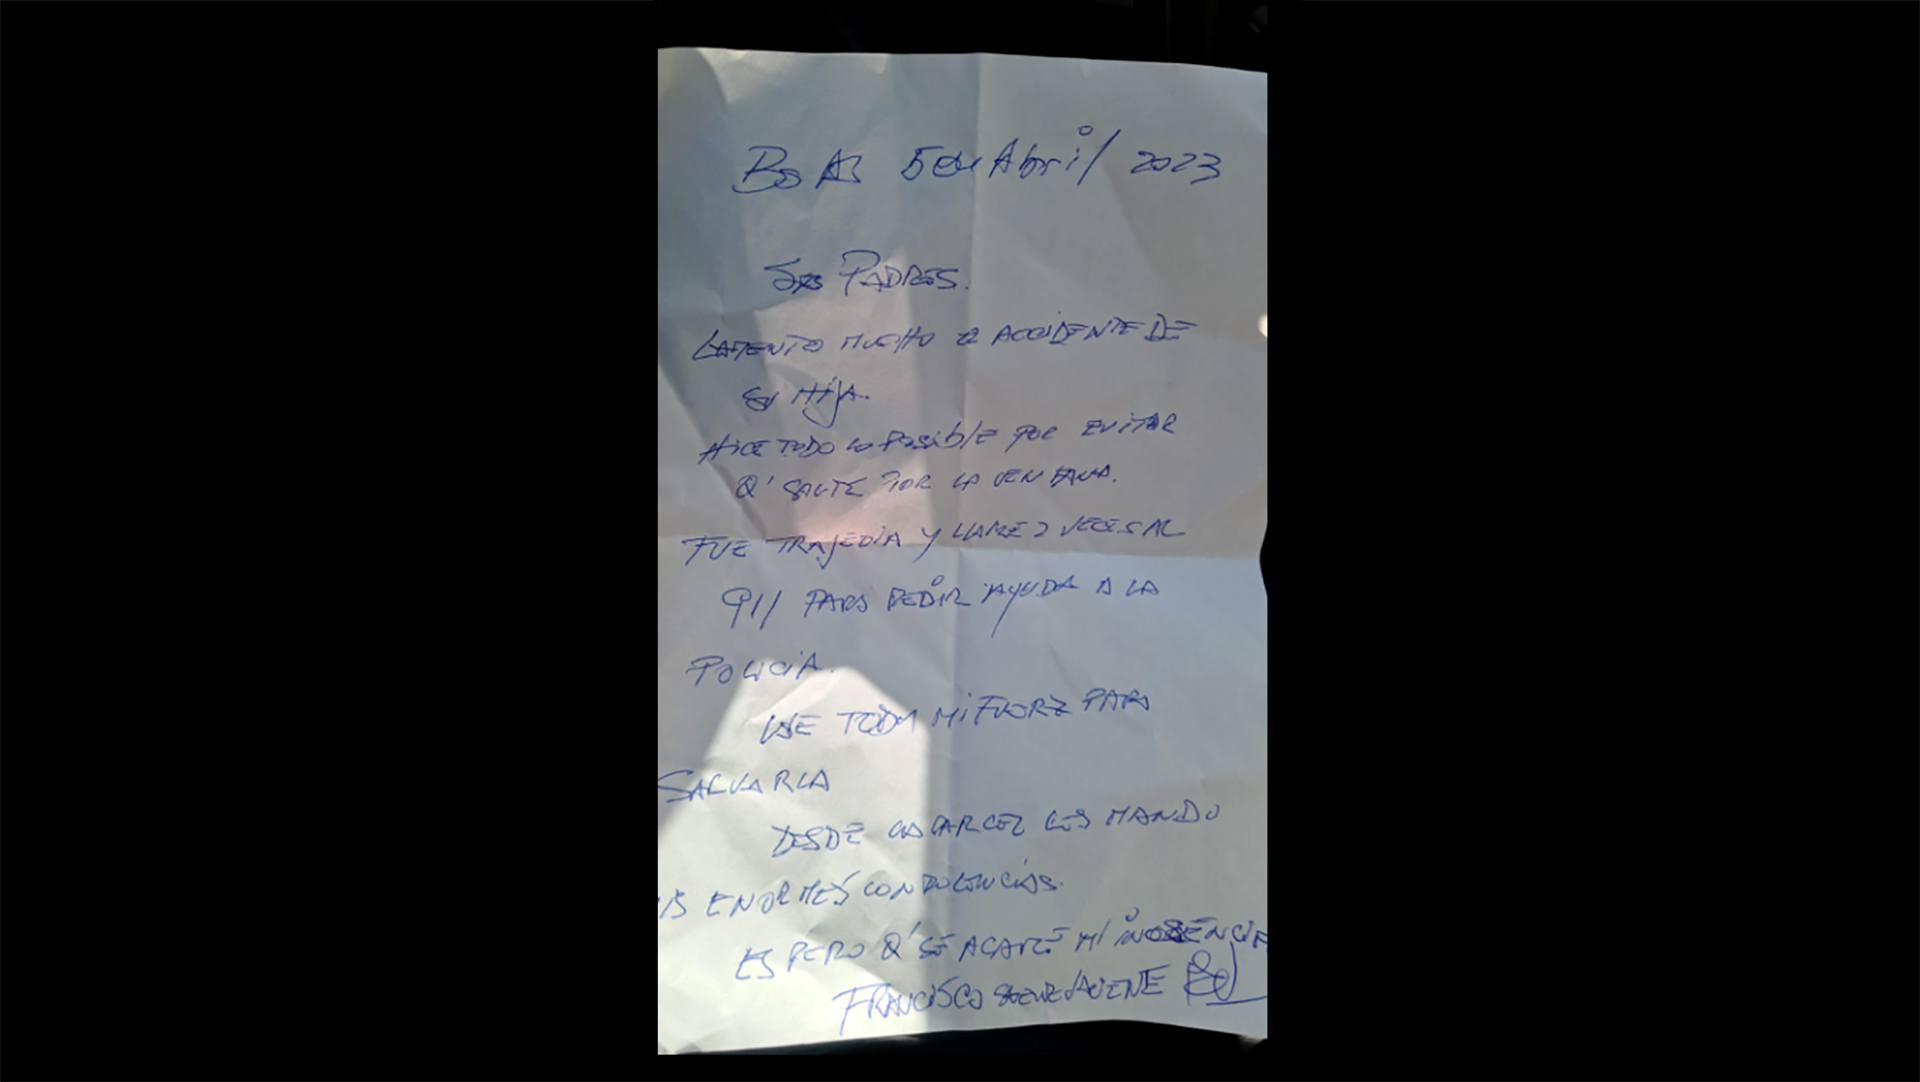 Bs As 5 de Abril / 2023
Srs PADRES.
LAMENTO MUCHO EL ACCIDENTE DE
SU HIJA.
HICE TODO LO POSIBLE POR EVITAR
Q' SALTE POR LA VENTANA.
FUE TRAJEDIA Y LLAME 2 VECES AL
911 PARA PEDIR AYUDA A LA
POLICIA.
USE TODA MI FUERZ PARA
SALVARLA
DESDE LA CARCEL LES MANDO
MIS ENORMES CONDOLENCIAS.
ESPERO Q' SE ACLARE MI INOSENCIA
FRANCISCO